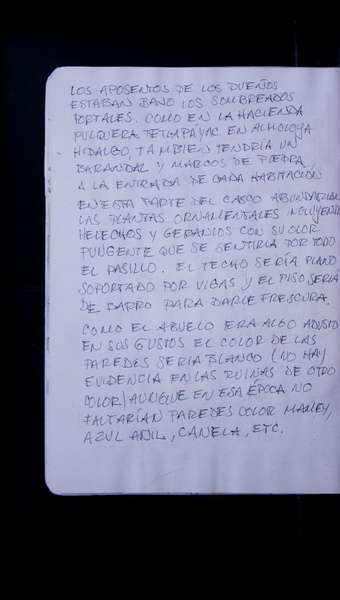 LOS APOSENTOS DE LOS DUEÑOS
ESTABAN BAJO LOS SOMBREADOS
PORTALES. COMO EN LA HACIENDA
PULQUERA TETLAPAYAC EN ALMOLOYA
HIDALGO, TAMBIEN TENDRÍA UN
BARANDAL Y MARCOS DE PIEDRA,
A LA ENTRADA DE CADA HABITACIÓN
EN ESTA PARTE DEL CASCO ABUNDARÍAN
LAS PLANTAS ORNAMENTALES INCLUYENDO
HELECHOS Y GERANIOS CON SU OLOR
PUNGENTE QUE SE SENTIRIA POR TODO
EL PASILLO. EL TECHO SERÍA PLANO
SOPORTADO POR VIGAS Y EL PISO SERIA
DE BARRO PARA DARLE FRESCURA.
COMO EL ABUELO ERA ALGO ADUSTO
EN SUS GUSTOS EL COLOR DE LAS
PAREDES SERIA BLANCO (NO HAY
EVIDENCIA EN LAS RUINAS DE OTRO
COLOR) AUNQUE EN ESA ÉPOCA NO
FALTARÍAN PAREDES COLOR MAMEY,
AZUL AÑIL, CANELA, ETC.